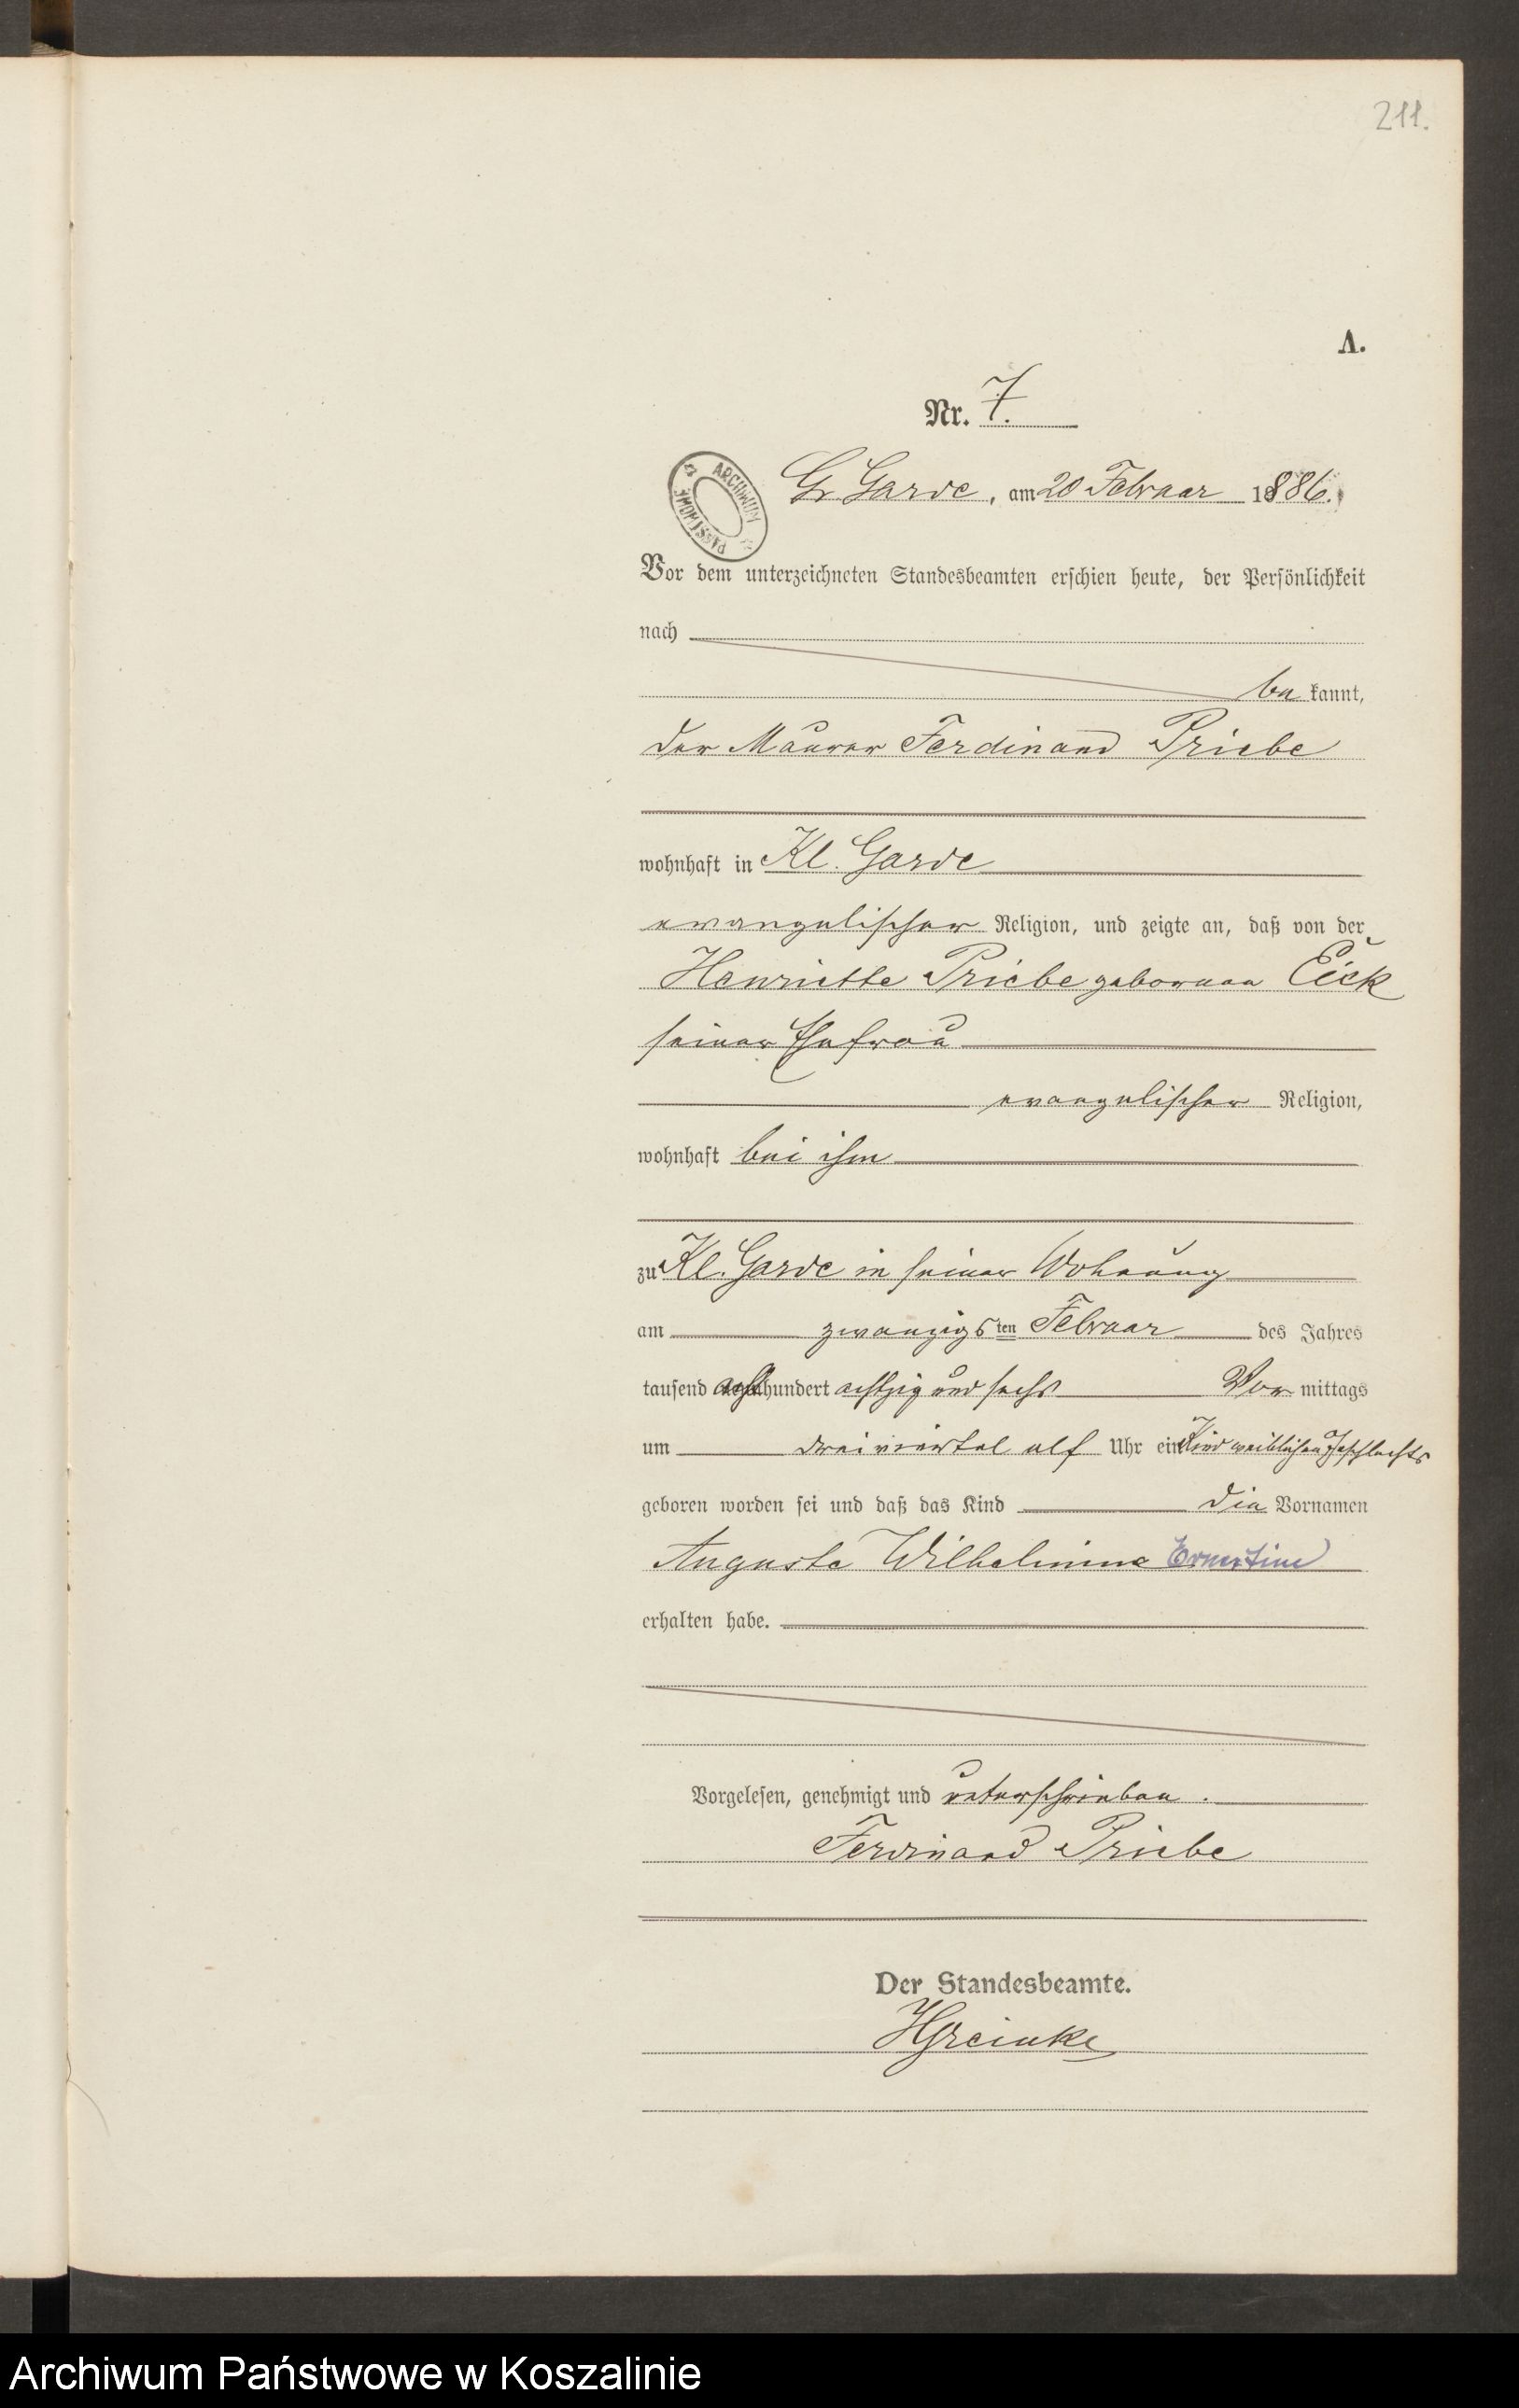 211.
A.
Nr. 7.
ARCHIWUM PAŃSTWOWE
Gr. Garde, am 20 Februar 1886.
Vor dem unterzeichneten Standesbeamten erschien heute, der Persönlichkeit
nach
be kannt,
der Maurer Ferdinand Priebe
wohnhaft in Kl. Garde
evangelischer Religion, und zeigte an, daß von der
Henriette Priebe geborenen Eick
seiner Ehefrau
evangelischer Religion,
wohnhaft bei ihm
zu Kl. Garde in seiner Wohnung
am zwanzigsten Februar des Jahres
tausend achthundert achtzig und sechs Vor mittags
um dreiviertel elf Uhr ein Kind weiblichen Geschlechts
geboren worden sei und daß das Kind die Vornamen
Auguste Wilhelmine Ernestine
erhalten habe.
Vorgelesen, genehmigt und unterschrieben.
Ferdinand Priebe
Der Standesbeamte.
Archiwum Państwowe w Koszalinie